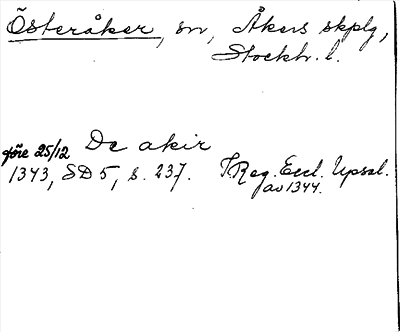 Österåker, sn, Åkers skplg,
Stockh. l.
före 25/12 De akir
1343, SD 5, s. 237. Reg. Eccl. Upsal.
av 1344.